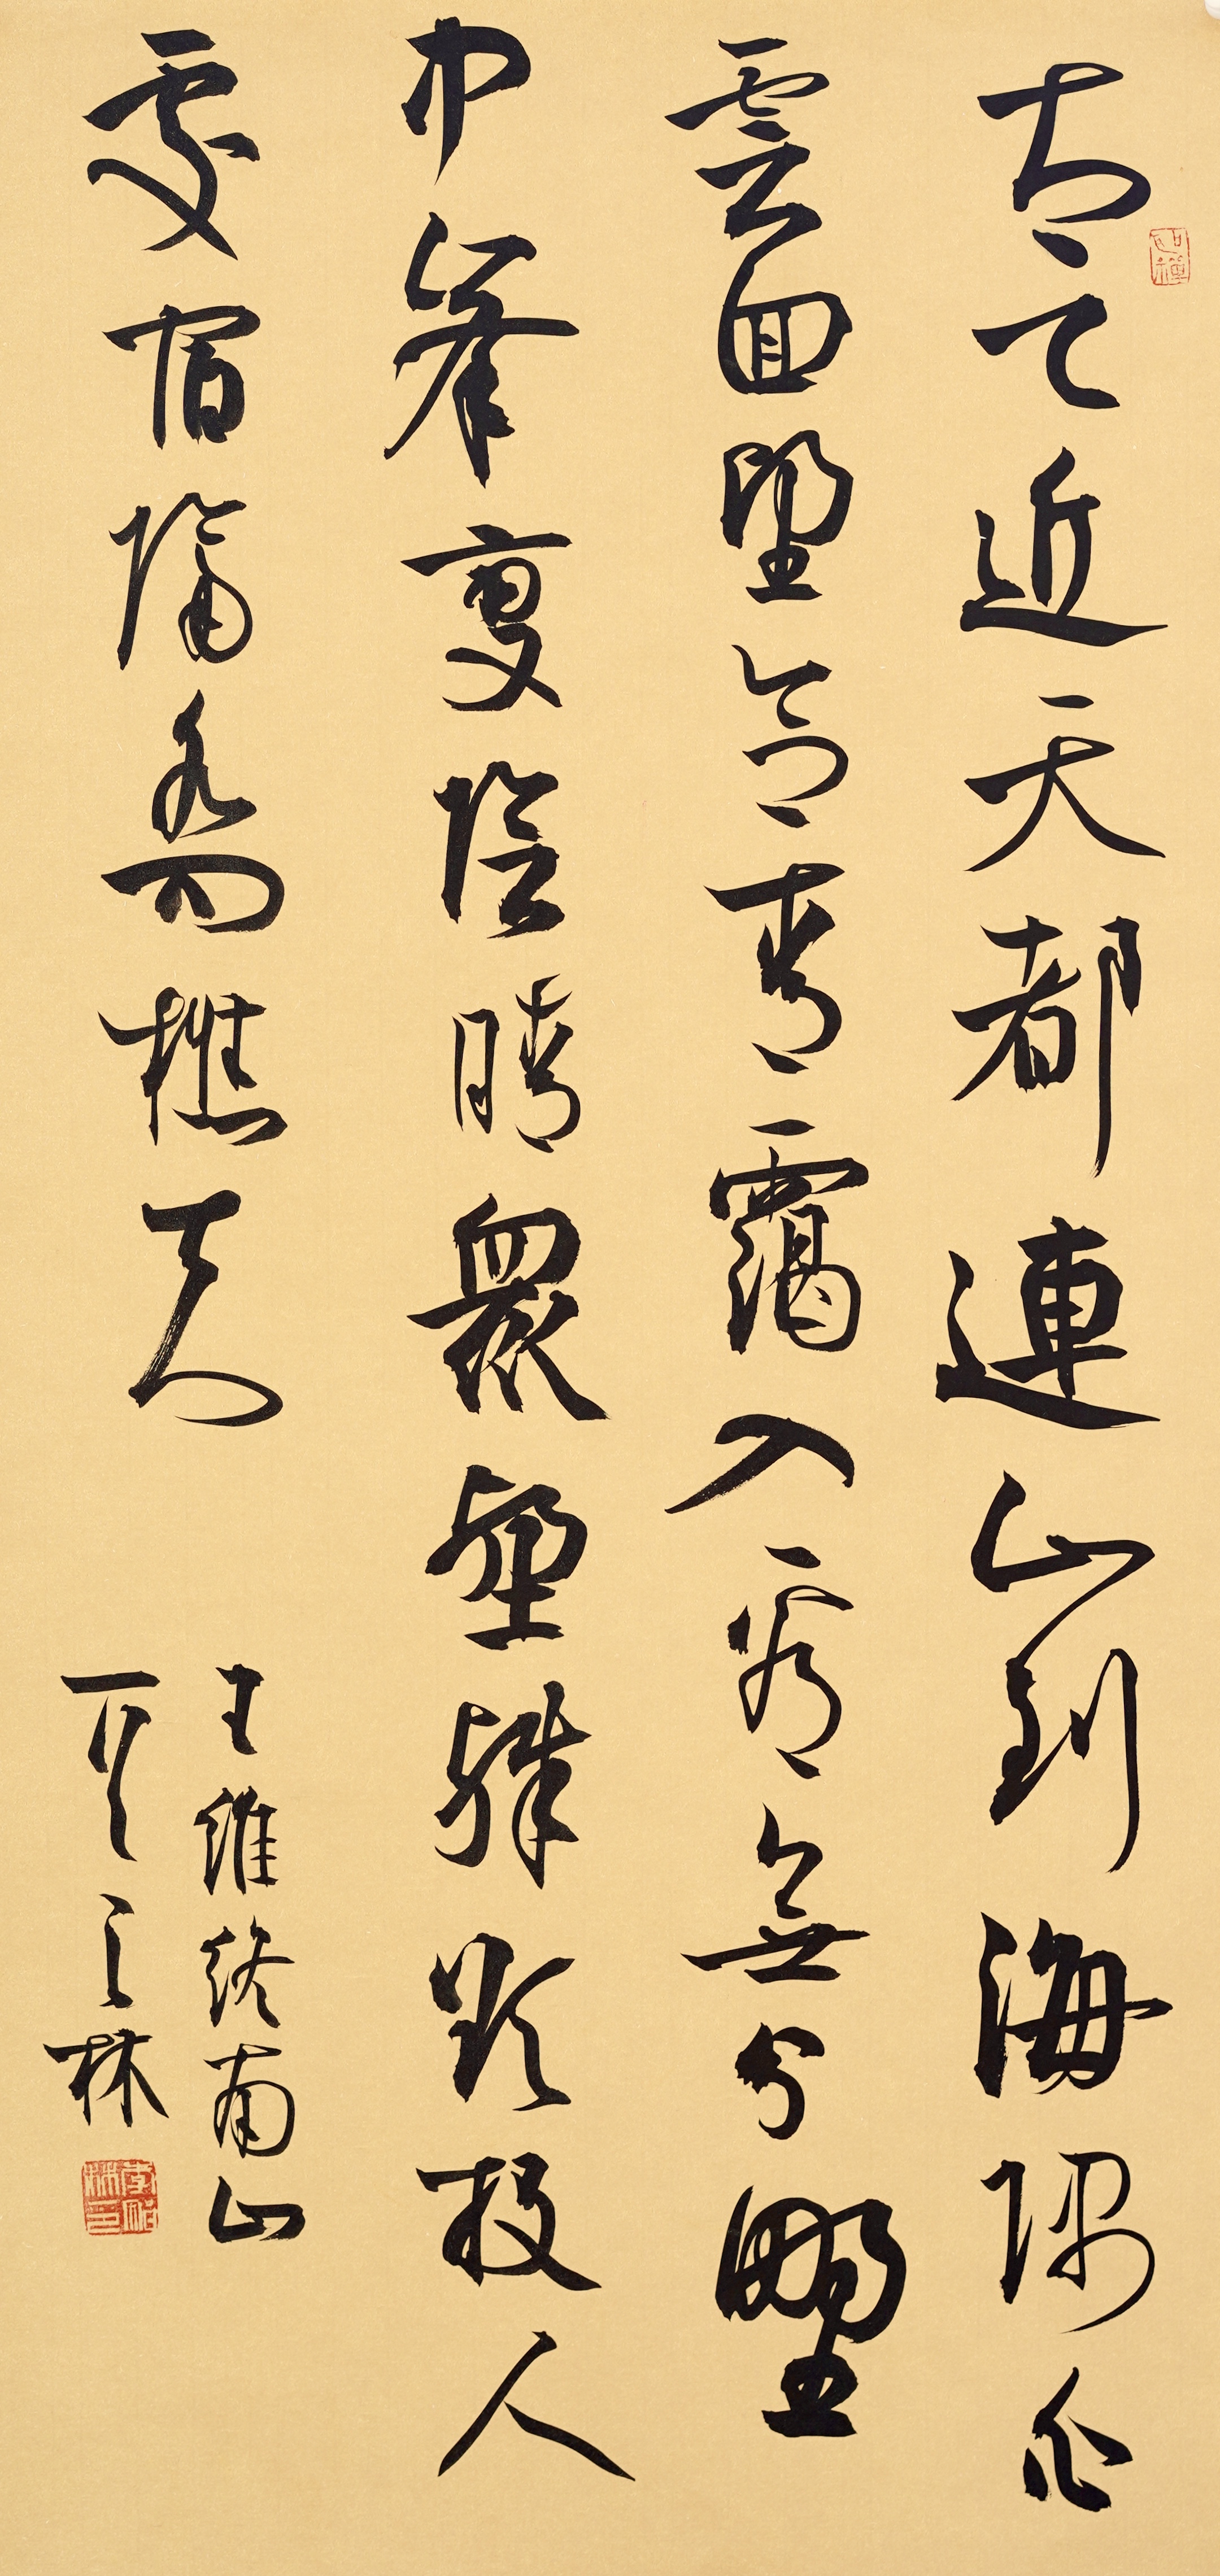 太乙近天都連山到海隅白
雲回望合青靄入看無分野
中峯變陰晴眾壑殊欲投人
處宿隔水問樵夫
王維終南山
之林